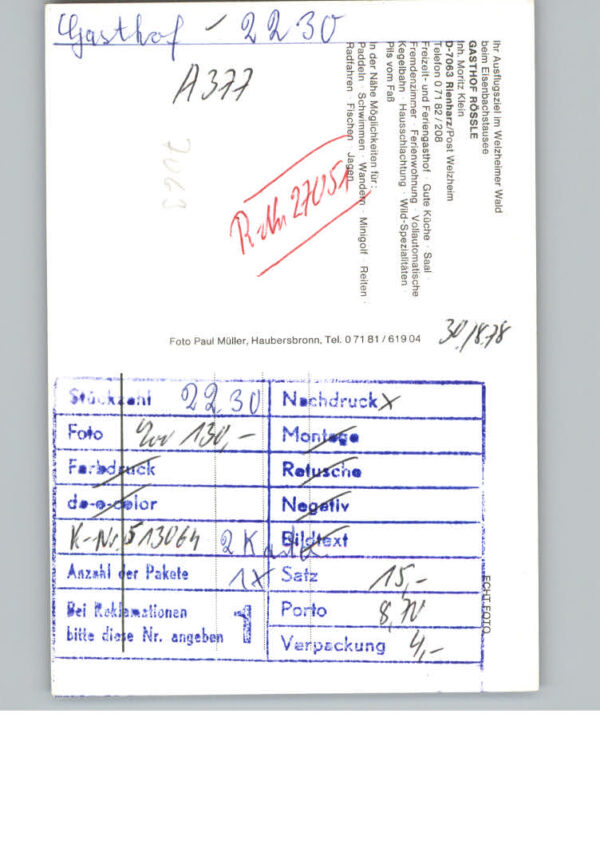 Gasthof - 2230
A377
7063
Ihr Ausflugsziel im Welzheimer Wald
beim Eisenbachstausee
GASTHOF RÖSSLE
Inh. Moritz Klein
D-7063 Rienharz/Post Welzheim
Telefon 0 71 82 / 208
Freizeit- und Feriengasthof · Gute Küche · Saal ·
Fremdenzimmer · Ferienwohnung · Vollautomatische
Kegelbahn · Hausschlachtung · Wild-Spezialitäten ·
Pils vom Faß
In der Nähe Möglichkeiten für:
Paddeln · Schwimmen · Wandern · Minigolf · Reiten ·
Radfahren · Fischen · Jagen
R-Nr 27051
30/8.78
Foto Paul Müller, Haubersbronn, Tel. 0 71 81 / 6 19 04
Stückzahl 2230 Nachdruck X
Foto 130,- Montage
Farbdruck Retusche
de-o-color Negativ
K-Nr. 513064 2 Bildtext
Anzahl der Pakete 1x Satz 15,-
Bei Reklamationen 1 Porto 8,70
bitte diese Nr. angeben Verpackung 4,-
ECHT-FOTO